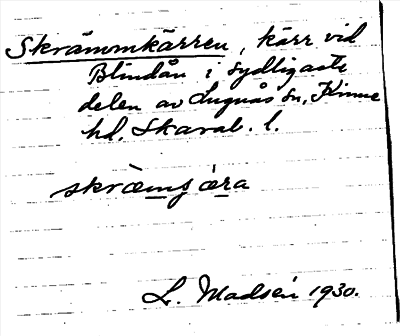 Skrämmkärren, kärr vid
Blindån i sydligaste
delen av Lugnås sn, Kinne
hd. Skarab. l.
L. Madsén 1930.